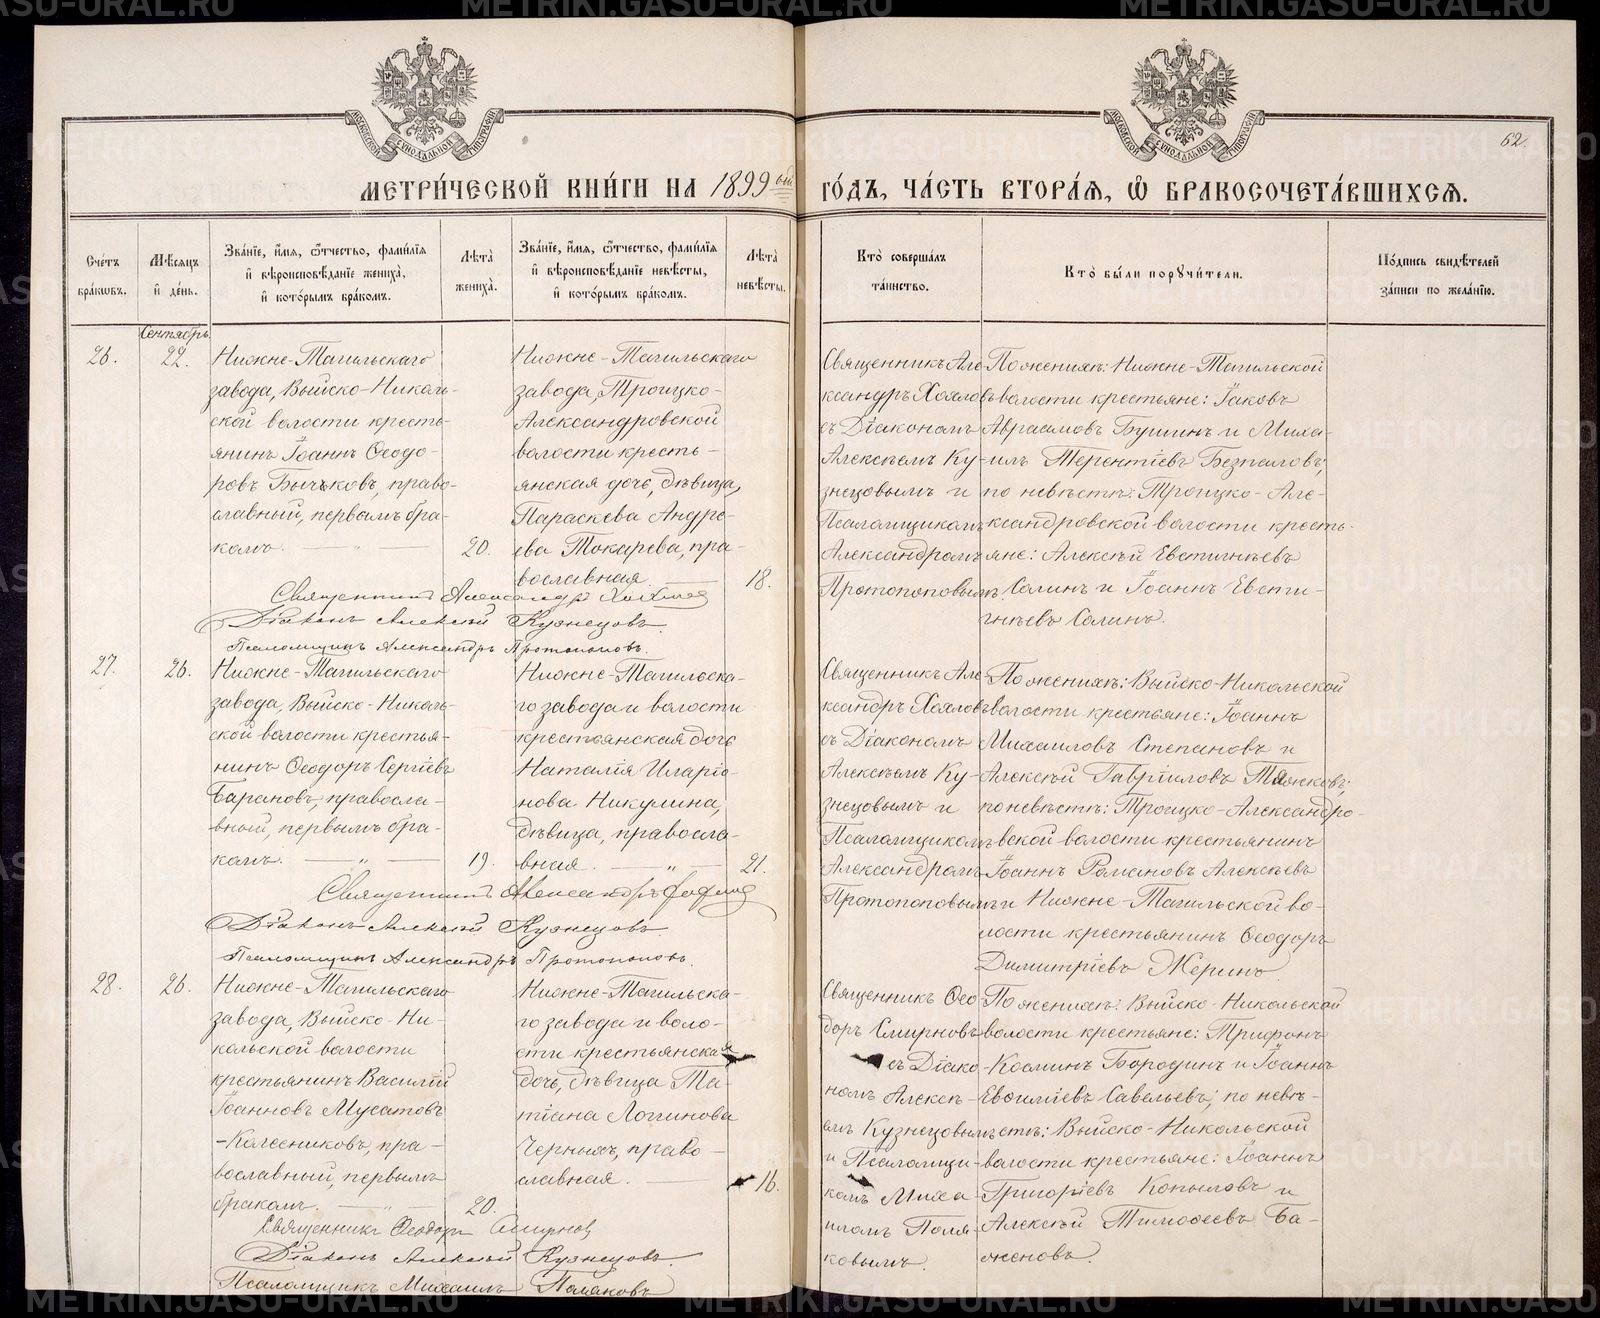 МЕТРИ́ЧЕСКОЙ КНИ́ГИ НА 1899ый ГО́ДЪ, ЧА́СТЬ ВТОРА́Я, Ѡ҆ БРАКОСОЧЕТА́ВШИХСЯ.
62.
Сче́тъ бра́кѡвъ.
Мѣ́сяцъ и҆ де́нь.
Зва́нїе, и҆́мя, ѻ҆́тчество, фами́лїя и҆ вѣроисповѣ́данїе жениха̀, и҆ кото́рымъ бра́комъ.
Лѣ́та жениха̀.
Зва́нїе, и҆́мя, ѻ҆́тчество, фами́лїя и҆ вѣроисповѣ́данїе невѣ́сты, и҆ кото́рымъ бра́комъ.
Лѣ́та невѣ́сты.
Кто̀ соверша́лъ та́инство.
Кто̀ бы́ли порꙋчи́тели.
По́дпись свидѣ́телей за́писи по жела́нїю.
Сентябрь
26.
22.
Нижне-Тагильскаго
завода, Выйско-Николь-
ской волости кресть-
янинъ Іоаннъ Ѳеодо-
ровъ Бычковъ, право-
славный, первымъ бра-
комъ.
20.
Нижне-Тагильскаго
завода, Троицко-
Александровской
волости кресть-
янская дочь, дѣвица,
Параскева Андре-
ева Токарева, пра-
вославная.
18.
Священникъ Але-
ксандръ Хохловъ
съ Діакономъ
Алексѣемъ Ку-
знецовымъ и
Псаломщикомъ
Александромъ
Протопоповымъ.
По женихѣ: Нижне-Тагильской
волости крестьяне: Іаковъ
Авраамовъ Бушинъ и Миха-
илъ Терентіевъ Безпаловъ;
по невѣстѣ: Троицко-Але-
ксандровской волости кресть-
яне: Алексѣй Евстигнѣевъ
Солинъ и Іоаннъ Евсти-
гнѣевъ Солинъ.
Священникъ Александръ Хохловъ
Діаконъ Алексѣй Кузнецовъ.
Псаломщикъ Александръ Протопоповъ.
27.
26.
Нижне-Тагильскаго
завода, Выйско-Николь-
ской волости крестья-
нинъ Ѳеодоръ Сергіевъ
Барановъ, правосла-
вный, первымъ бра-
комъ.
19.
Нижне-Тагильска-
го завода и волости
крестьянская дочь
Наталія Иларіо-
нова Никулина,
дѣвица, правосла-
вная.
21.
Священникъ Але-
ксандръ Хохловъ
съ Діакономъ
Алексѣемъ Ку-
знецовымъ и
Псаломщикомъ
Александромъ
Протопоповымъ
По женихѣ: Выйско-Никольской
волости крестьяне: Іоаннъ
Михаиловъ Степановъ и
Алексѣй Гавріиловъ
по невѣстѣ: Троицко-Александро-
вской волости крестьянинъ
Іоаннъ Романовъ Алексѣевъ
и Нижне-Тагильской во-
лости крестьянинъ Ѳеодоръ
Димитріевъ Жеринъ
Священникъ Александръ Хохловъ
Діаконъ Алексѣй Кузнецовъ.
Псаломщикъ Александръ Протопоповъ.
28.
26.
Нижне-Тагильскаго
завода, Выйско-Ни-
кольской волости
крестьянинъ Василій
Іоанновъ Мусатовъ
-Колесниковъ, пра-
вославный, первымъ
бракомъ.
20.
Нижне-Тагильска-
го завода и воло-
сти крестьянская
дочь, дѣвица Та-
тіана Логинова
Черныхъ, право-
славная.
16.
Священникъ Ѳео-
доръ Смирновъ
съ Діако-
номъ Алексѣ-
емъ Кузнецовымъ
и Псаломщи-
комъ Миха-
иломъ Поля-
ковымъ.
По женихѣ: Выйско-Никольской
волости крестьяне: Трифонъ
Косминъ Бородинъ и Іоаннъ
Евѳиміевъ Савельевъ; по невѣ-
стѣ: Выйско-Никольской
волости крестьяне: Іоаннъ
Григоріевъ Копыловъ и
Алексѣй Тимоѳеевъ Ба-
женовъ.
Священникъ Ѳеодоръ Смирновъ
Діаконъ Алексѣй Кузнецовъ.
Псаломщикъ Михаилъ Поляковъ